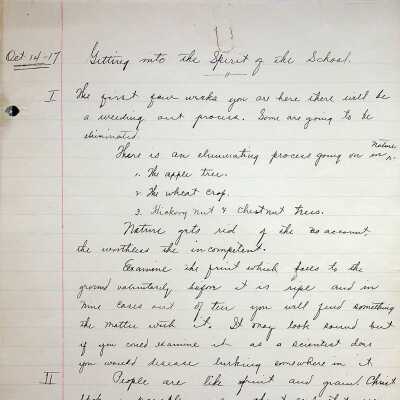 13
Oct 14-17 Getting into the Spirit of the School.
I The first four weeks you are here there will be
a weeding out process. Some are going to be
eliminated.
There is an eliminating process going on in Nature
1. The apple tree.
2. The wheat crop.
3. Hickory nut & Chestnut trees.
Nature gets rid of the no account,
the worthless the incompetent.
Examine the fruit which falls to the
ground voluntarily before it is ripe and in
nine cases out of ten you will find something
the matter with it. It may look sound but
if you could examine it as a scientist does
you would disease lurking somewhere in it.
II People are like fruit and grain. Christ